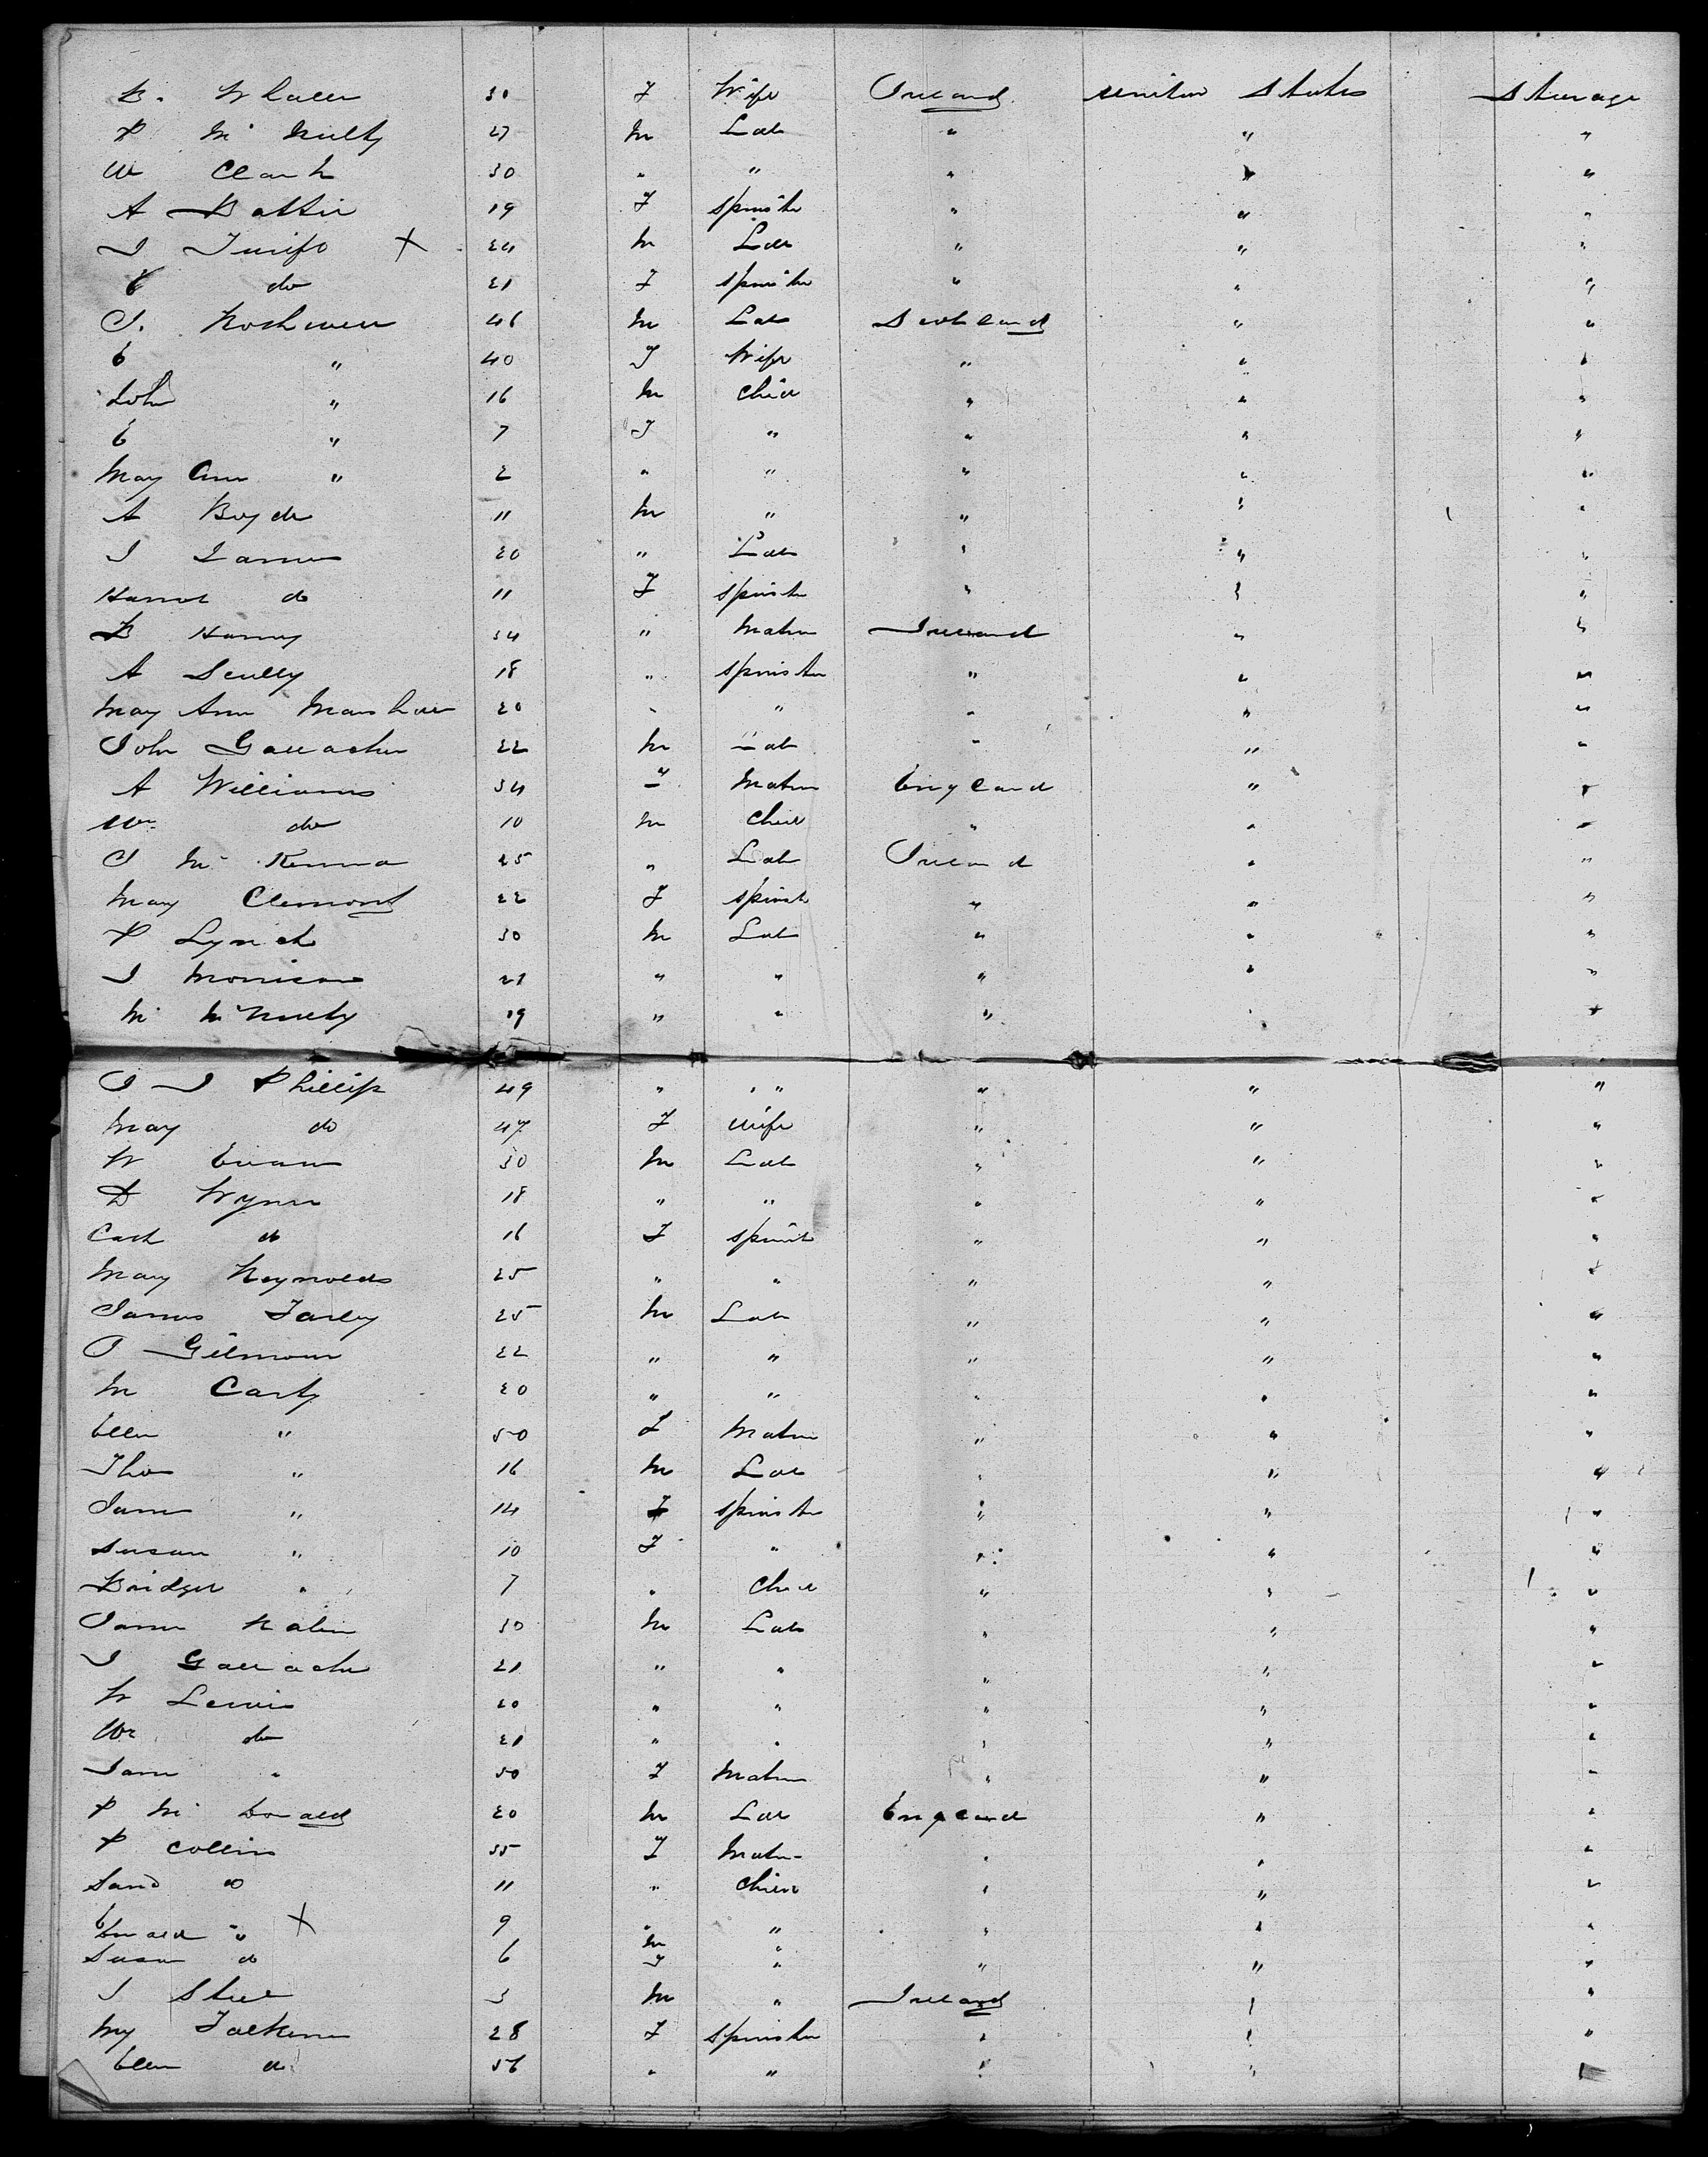 B. Whalen 30 F Wife Ireland United States Steerage
P Mc Nulty 27 M Lab " " "
W Clark 30 " " " " "
A Battie 19 F Spinster " " "
J X 24 M Lab " " "
E do 21 F Spinster " " "
J. 46 M Lab Scotland " "
E " 40 F Wife " " "
John " 16 M Child " " "
E " 7 F " " " "
Mary Ann " 2 " " " " "
A Boyde 11 M " " " "
J James 20 " Lab " " "
Hannah do 11 F Spinster " " "
B Harvey 34 " Matron Ireland " "
A Scully 18 " Spinster " " "
Mary Ann Marshall 20 " " " " "
John Gallacher 22 M Lab " " "
A Williams 34 F Matron England " "
Wm do 10 M Child " " "
J Mc Kenna 25 " Lab Ireland " "
Mary Clemont 22 F Spinst " " "
P Lynch 30 M Lab " " "
J Morrison 21 " " " " "
M McNulty 19 " " " " "
J J Phillip 49 " " " " "
Mary do 47 F Wife " " "
W Evans 30 M Lab " " "
D Wynn 18 " " " " "
Cath do 16 F Spinst " " "
Mary Reynolds 25 " " " " "
James Farley 25 M Lab " " "
J Gilmour 22 " " " " "
M Carty 20 " " " " "
Ellen " 50 F Matron " " "
Thos " 16 M Lab " " "
Jane " 14 F Spinster " " "
Susan " 10 F " " " "
Bridget " 7 " Child " " "
James 30 M Lab " " "
J Gallacher 21 " " " " "
W Lewis 20 " " " " "
Wm do 21 " " " " "
Jane " 50 F Matron " " "
P Mc Donald 20 M Lab England " "
P Collins 35 F Matron " " "
do 11 " Child " " "
" X 9 M " " " "
Susan do 6 F " " " "
J Steel 3 M " Ireland " "
My 28 F Spinster " " "
Ellen do 56 " " " " "